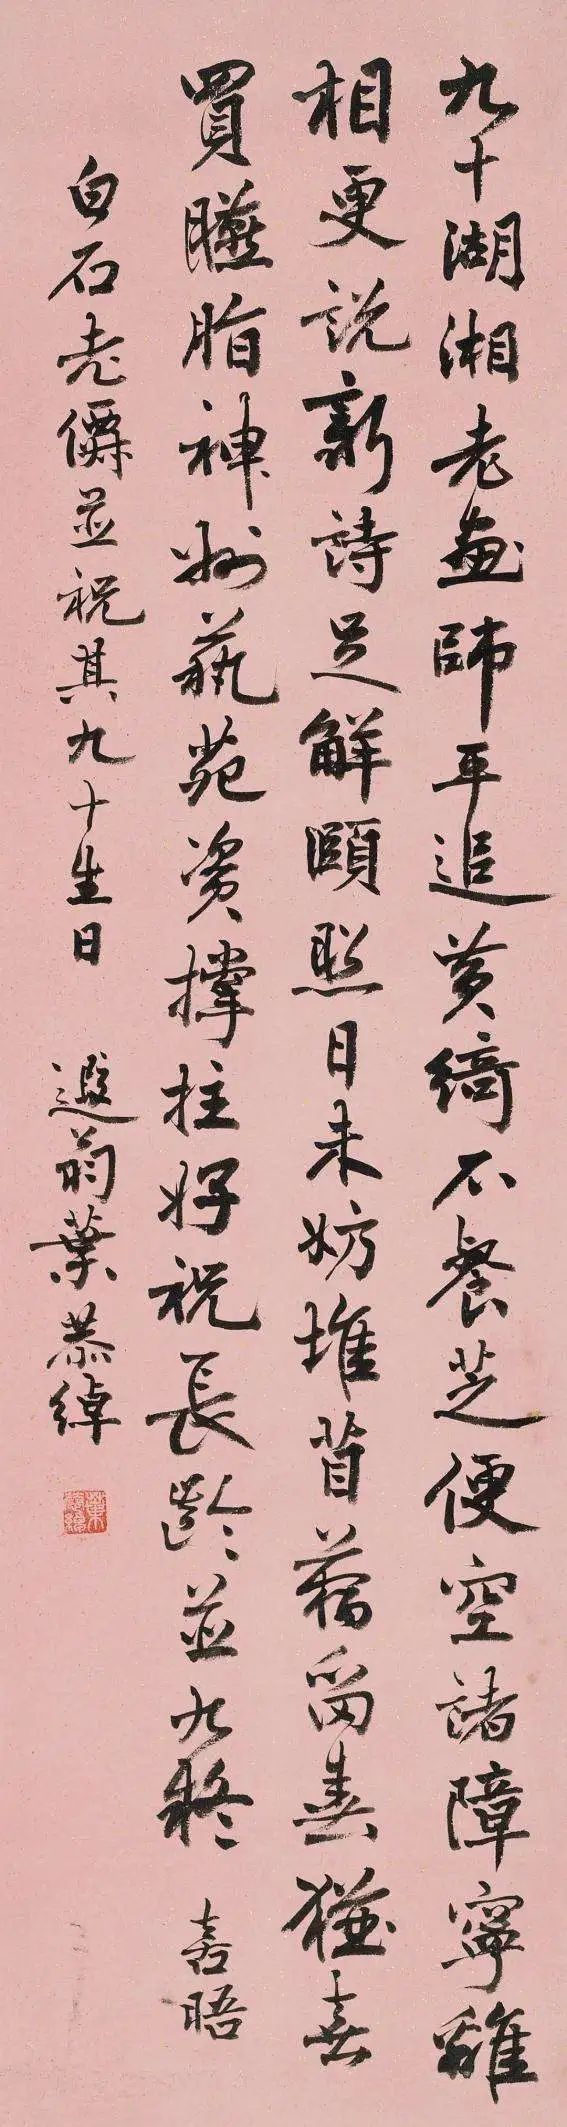 九十湖湘老畫師平追黃綺不餐芝便空諸障寧離
相更說新詩足解頤照日未妨堆苜蓿留春猶喜
買臙脂神州藝苑資撐拄好祝長齡並九 喜晤
白石老僊並祝其九十生日 遐翁葉恭綽